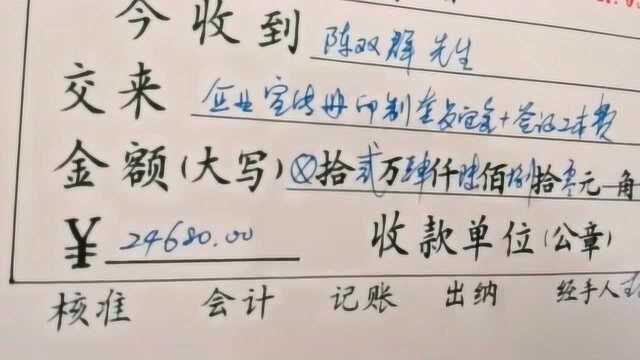 今收到 陈双群 先生
交来 企业宣传册印制 定金+登记工本费
金额(大写) ⊗拾贰万肆仟陆佰捌拾零元 角
¥ 24680.00 收款单位(公章)
核准 会计 记账 出纳 经手人